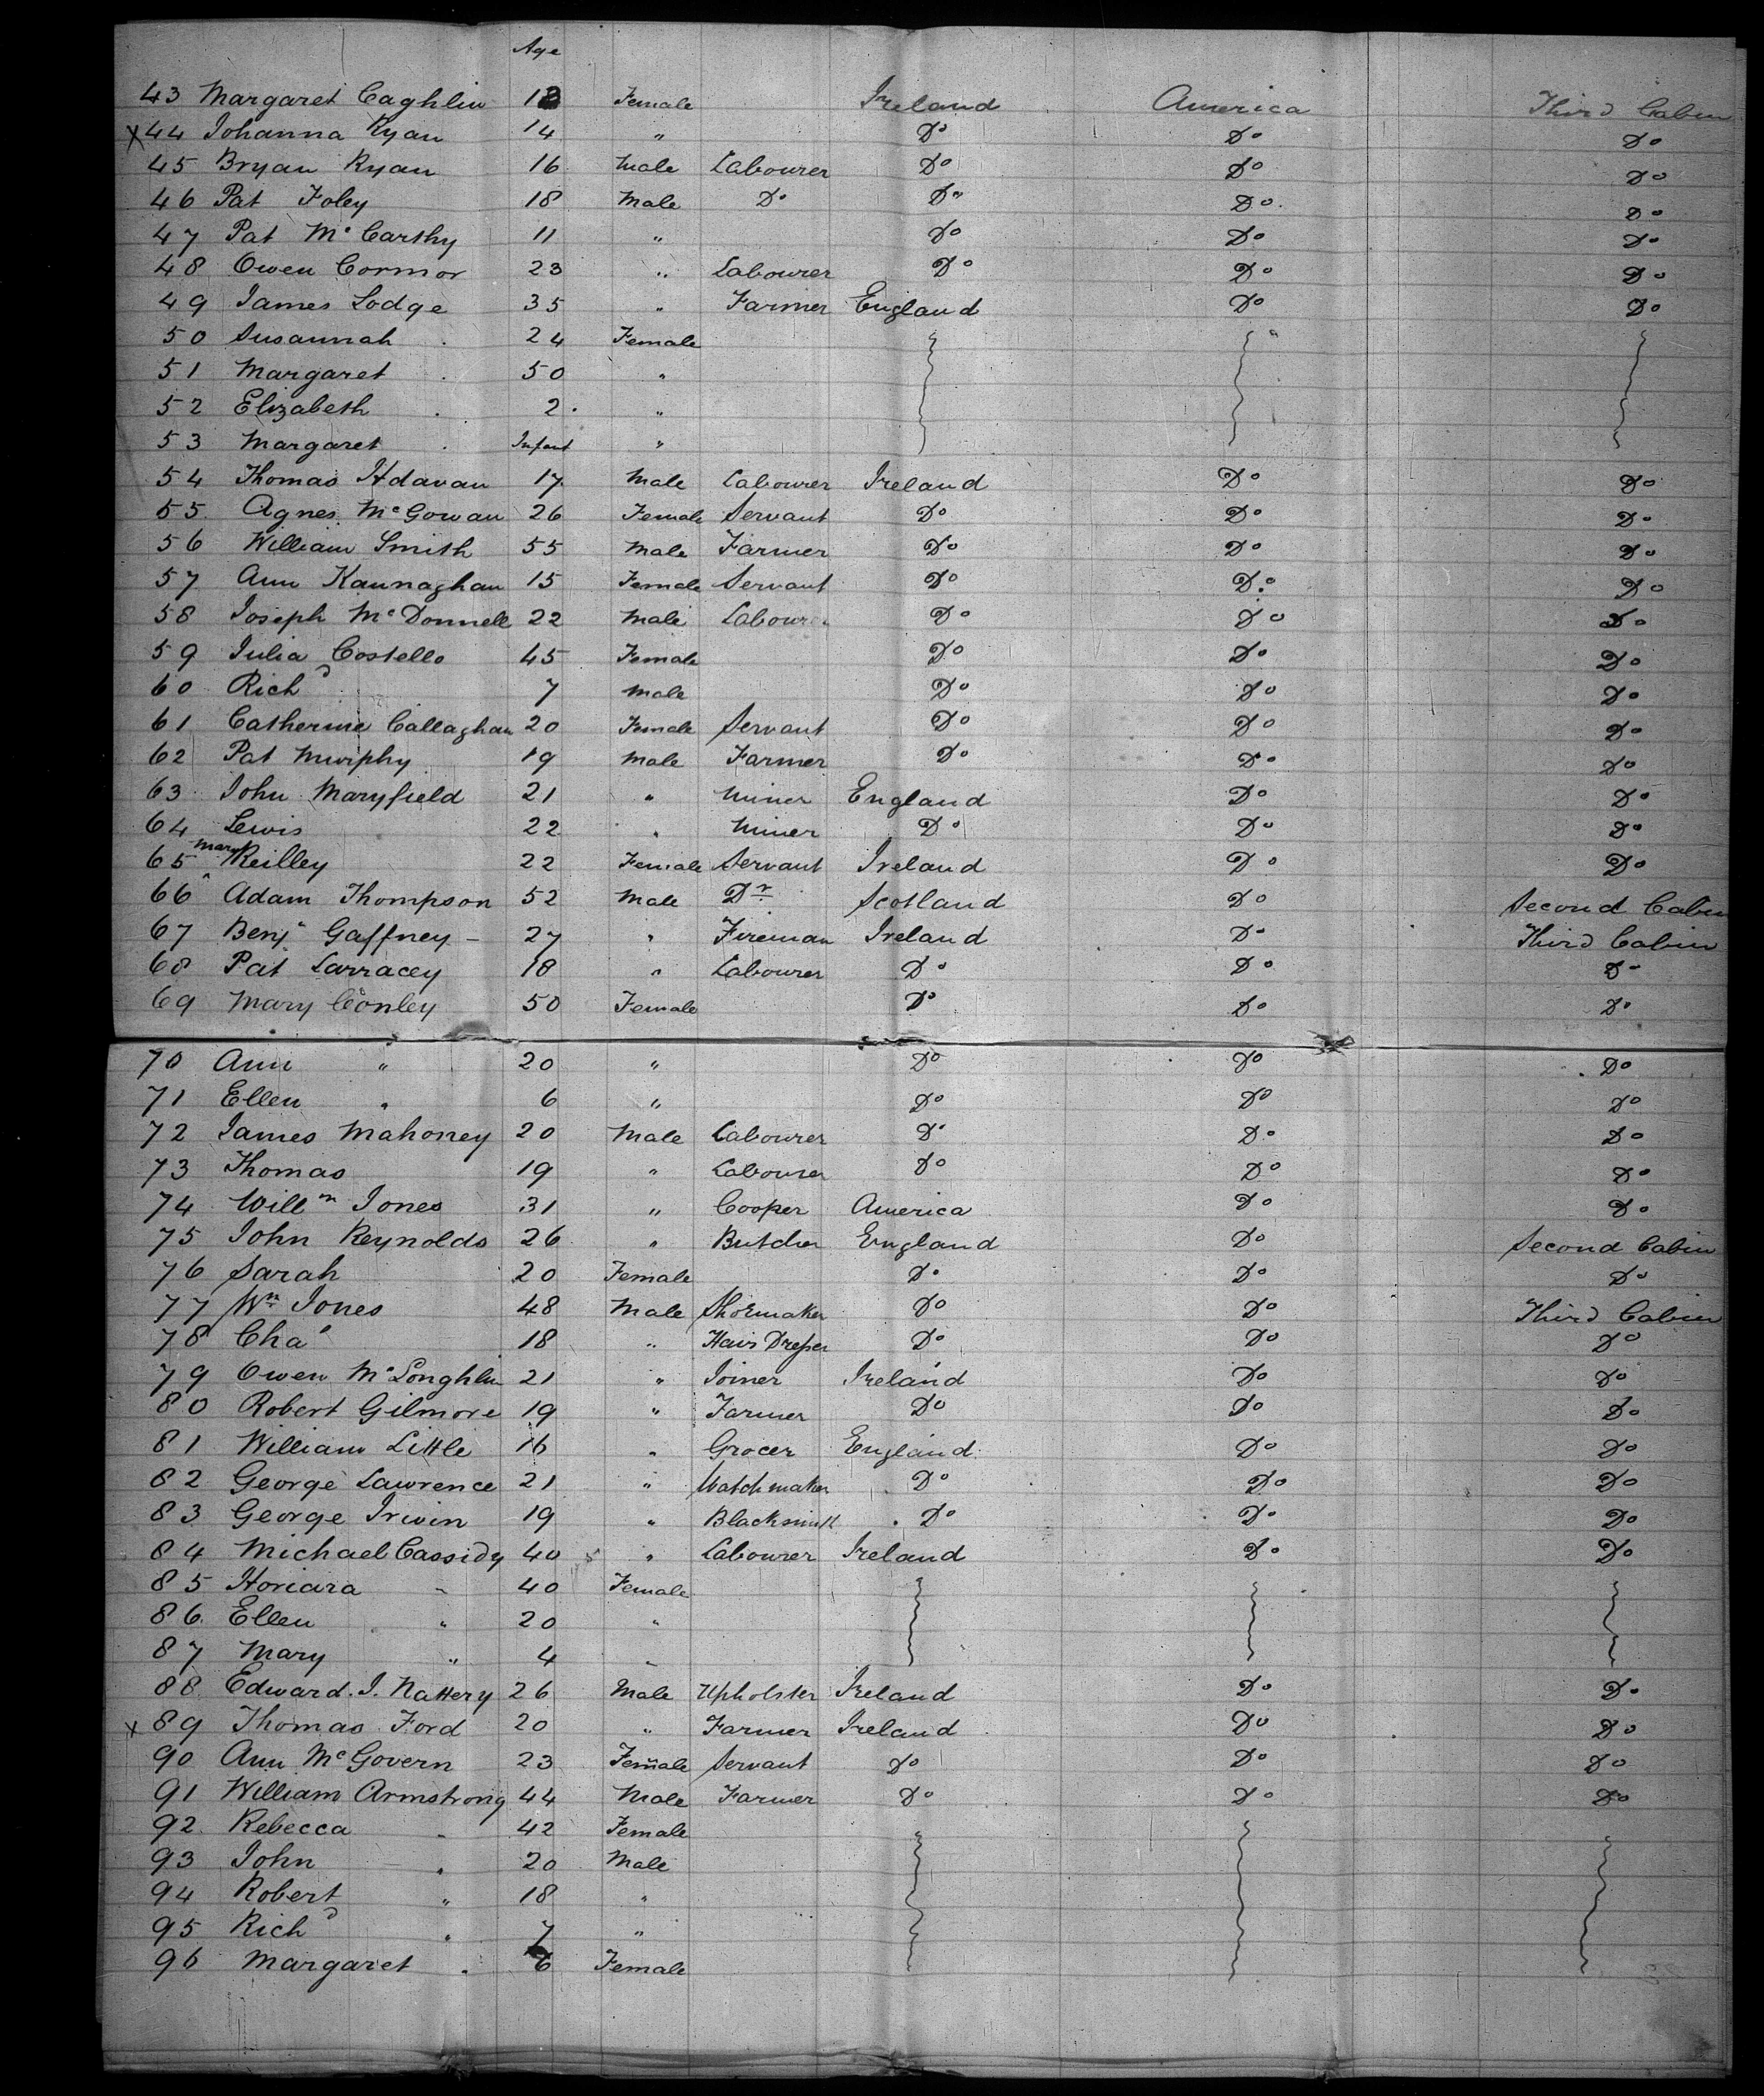 Age
43 Margaret Caghlin 18 Female Ireland America Third Cabin
X 44 Johanna Ryan 14 " Do Do Do
45 Bryan Ryan 16 Male Labourer Do Do Do
46 Pat Foley 18 Male Do Do Do Do
47 Pat McCarthy 11 " Do Do Do
48 Owen Cormor 23 " Labourer Do Do Do
49 James Lodge 35 " Farmer England Do Do
50 Susannah 24 Female
51 Margaret 50 "
52 Elizabeth 2 "
53 Margaret Infant "
54 Thomas 17 Male Labourer Ireland Do Do
55 Agnes McGowan 26 Female Servant Do Do Do
56 William Smith 55 Male Farmer Do Do Do
57 Ann Kaunaghan 15 Female Servant Do Do Do
58 Joseph McDonnell 22 Male Labourer Do Do Do
59 Julia Costello 45 Female Do Do Do
60 Richd 7 Male Do Do Do
61 Catherine Callaghan 20 Female Servant Do Do Do
62 Pat Murphy 19 Male Farmer Do Do Do
63 John Maryfield 21 " Miner England Do Do
64 Lewis 22 " Miner Do Do Do
65 Mary Reilley 22 Female Servant Ireland Do Do
66 Adam Thompson 52 Male Dr Scotland Do Second Cabin
67 Benjn Gaffney - 27 " Fireman Ireland Do Third Cabin
68 Pat Larracey 18 " Labourer Do Do Do
69 Mary Conley 50 Female Do Do Do
70 Ann " 20 " Do Do Do
71 Ellen " 6 " Do Do Do
72 James Mahoney 20 Male Labourer Do Do Do
73 Thomas 19 " Labourer Do Do Do
74 Willm Jones 31 " Cooper America Do Do
75 John Reynolds 26 " Butcher England Do Second Cabin
76 Sarah 20 Female Do Do Do
77 Wm Jones 48 Male Shoemaker Do Do Third Cabin
78 Chas 18 " Hair Dresser Do Do Do
79 Owen McLonghlin 21 " Joiner Ireland Do Do
80 Robert Gilmore 19 " Farmer Do Do Do
81 William Little 16 " Grocer England Do Do
82 George Lawrence 21 " Watchmaker Do Do Do
83 George Irwin 19 " Blacksmith Do Do Do
84 Michael Cassidy 40 " Labourer Ireland Do Do
85 Honara " 40 Female
86 Ellen " 20 "
87 Mary " 4 "
88 Edward J. Nattery 26 Male Upholster Ireland Do Do
X 89 Thomas Ford 20 " Farmer Ireland Do Do
90 Ann McGovern 23 Female Servant Do Do Do
91 William Armstrong 44 Male Farmer Do Do Do
92 Rebecca " 42 Female
93 John " 20 Male
94 Robert " 18 "
95 Richd " 7 "
96 Margaret " 6 Female